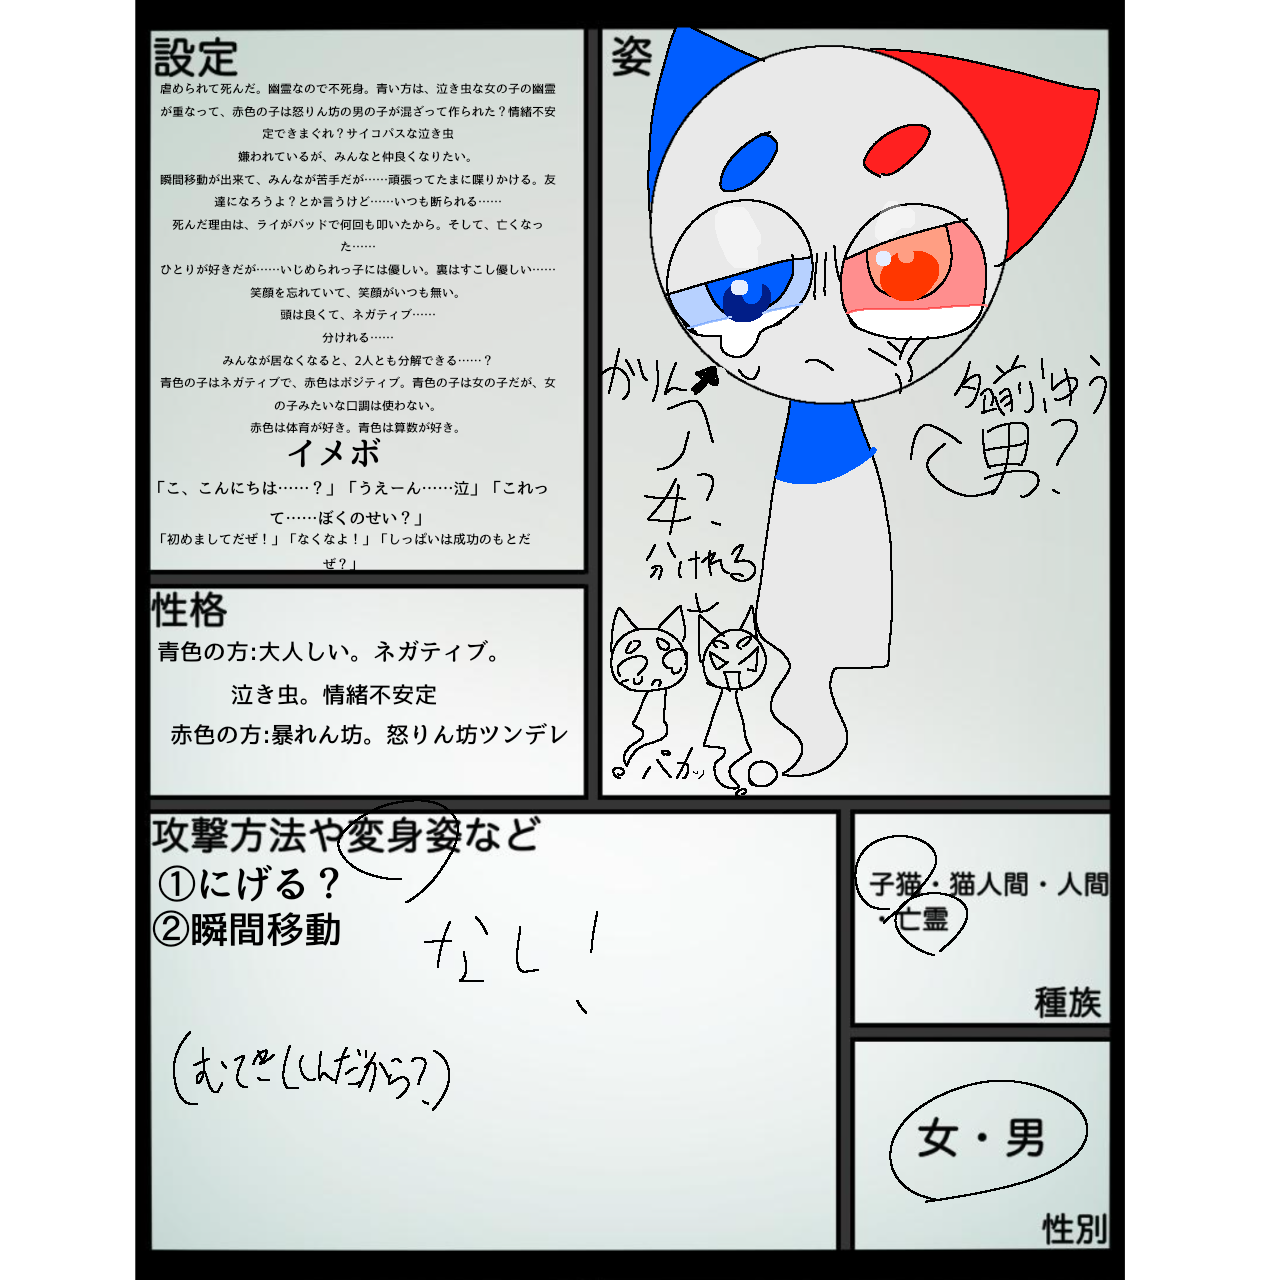 設定
虐められて死んだ。幽霊なので不死身。青い方は、泣き虫な女の子の幽霊
が重なって、赤色の子は怒りん坊の男の子が混ざって作られた？情緒不安
定できまぐれ？サイコパスな泣き虫
嫌われているが、みんなと仲良くなりたい。
瞬間移動が出来て、みんなが苦手だが……頑張ってたまに喋りかける。友
達になろうよ？とか言うけど……いつも断られる……
死んだ理由は、ライがバッドで何回も叩いたから。そして、亡くなっ
た……
ひとりが好きだが……いじめられっ子には優しい。裏はすこし優しい……
笑顔を忘れていて、笑顔がいつも無い。
頭は良くて、ネガティブ……
分けれる……
みんなが居なくなると、2人とも分解できる……？
青色の子はネガティブで、赤色はポジティブ。青色の子は女の子だが、女
の子みたいな口調は使わない。
赤色は体育が好き。青色は算数が好き。
イメボ
「こ、こんにちは……？」「うえーん……泣」「これっ
て……ぼくのせい？」
「初めましてだぜ！」「なくなよ！」「しっぱいは成功のもとだ
ぜ？」
姿
がりん
女？
名前:ゆう
男？
分けれる
パカッ
性格
青色の方:大人しい。ネガティブ。
泣き虫。情緒不安定
赤色の方:暴れん坊。怒りん坊ツンデレ
攻撃方法や変身姿など
①にげる？
②瞬間移動
なし！
(むてきしんだから?)
子猫・猫人間・人間
・亡霊
種族
女・男
性別